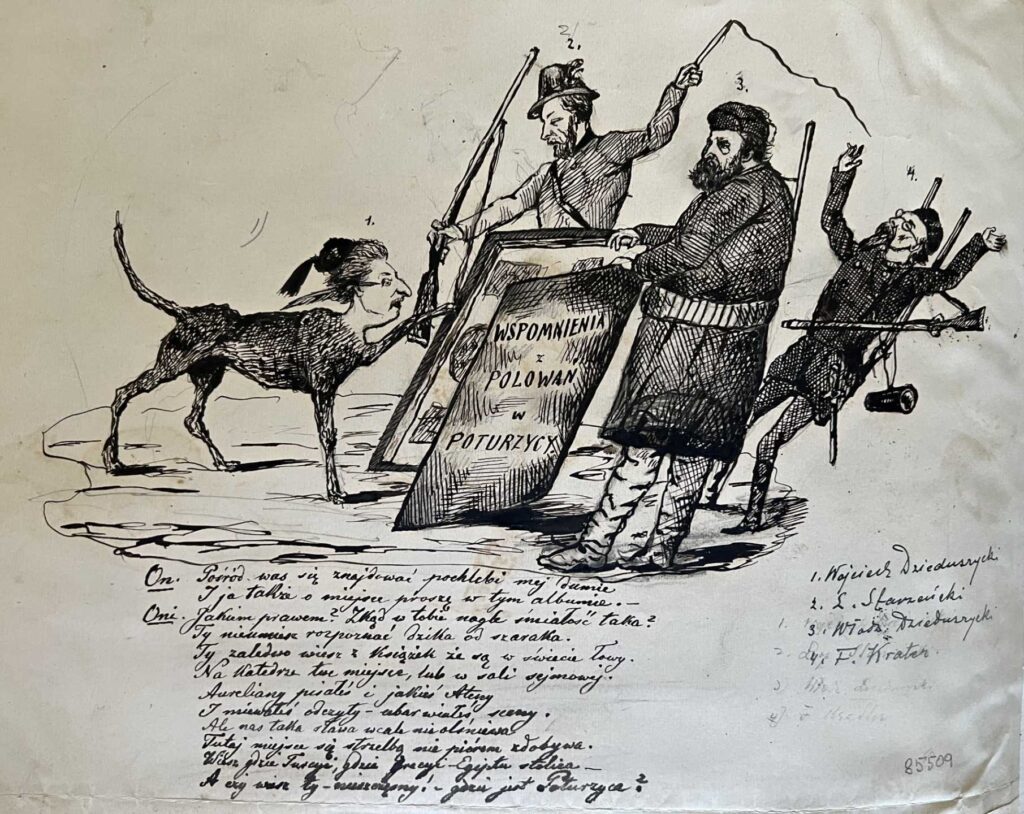 2.
3.
1.
4.
WSPOMNIENIA
z
POLOWAŃ
w
POTURZYCY
On. Pośród was się znajdować pochlebi mej dumie
I ja także o miejsce proszę w tym albumie. —
Oni. Jakiem prawem? Zkąd w tobie nagle śmiałość taka?
Ty nieumiesz rozpoznać dzika od szaraka.
Ty zaledwo wiesz z książek że są w świecie łowy.
Na katedrze twe miejsce, lub w sali sejmowej.
Aureliany pisałeś i jakieś Ateny
I miewałeś odczyty - ubarwiałeś sceny.
Ale nas taka sława wcale nieolśniewa
Tutaj miejsce się strzelbą nie piórem zdobywa.
Wiesz gdzie Turcyi, gdzie Grecyi - Egiptu stolica —
A czy wiesz ty - nieszczęsny! - gdzie jest Poturzyca?
1. Wojciech Dzieduszycki
2. Starzeński
3. Włodz. Dzieduszycki
F. Kratek.
85509